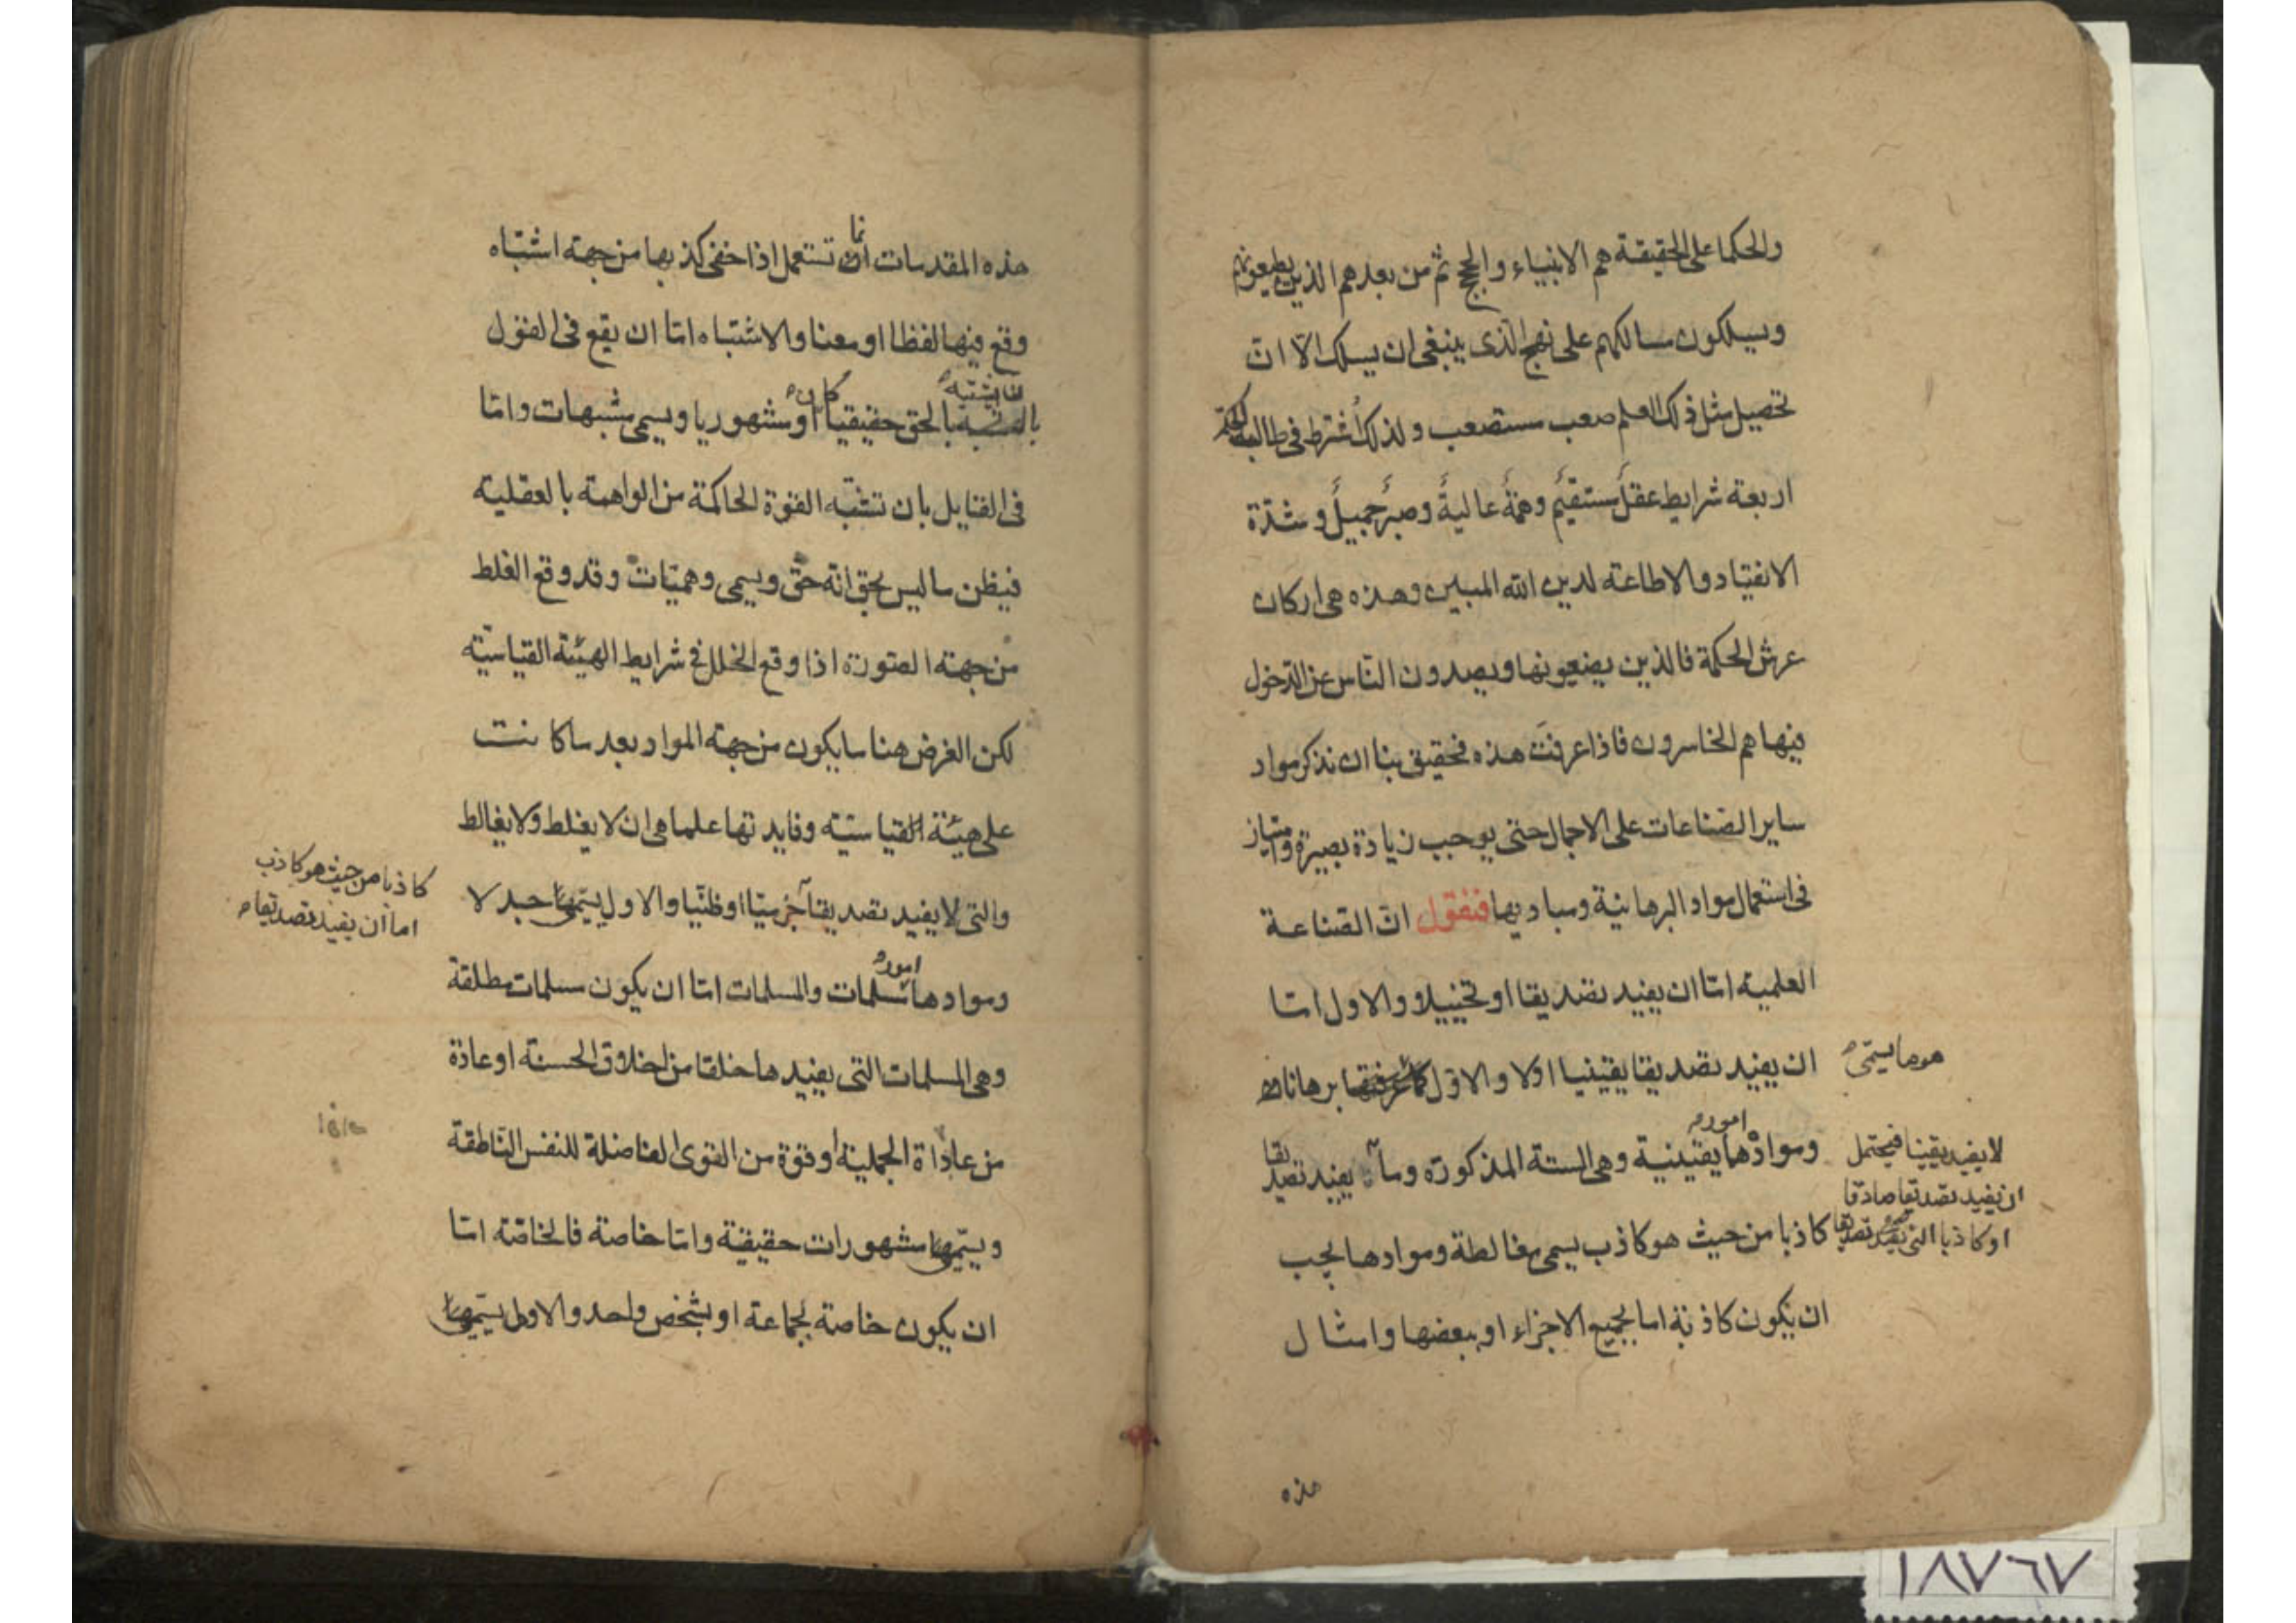 والحكما على الحقيقة هم الانبياء والحجج ثم من بعدهم الذين يطيعونهم
ويسلكون مسالكهم على نهج الذى ينبغى ان يسلك الّا انّ
تحصيل مثل ذلك العلم صعب مستصعب ولذلك اُشترط فى طالب الحكمة
اربعة شرايط عقلٌ مستقيمٌ وهمّةٌ عاليةٌ وصبرٌ جميلٌ وشدّة
الانقياد والاطاعة لدين الله المبين وهذه هى اركان
عرش الحكمة فالذين يضعيونها ويصدون النّاس عن الدّخول
فيها هم الخاسرون فاذا عرفتَ هذه فحقيق بنا ان نذكر مواد
ساير الصّناعات على الاجمال حتى يوجب زيادة بصيرة وامتياز
فى استعمال مواد البرهانية ومباديها فنقول انّ الصّناعة
العلمية امّا ان يفيد تصديقا او تخييلا والاول امّا
ان يفيد تصديقا يقينيا اولا والاوّل برهانا
هو ما يسمّى
وموادّها امور يقينية وهى الستة المذكورة وما يفيد تصديقا
لا يفيد يقينا فيحتمل
ان يفيد تصديقا صادقا
او كاذبا التى يفيد تصديقا
كاذبا من حيث هو كاذب يسمى مغالطة وموادها يجب
ان يكون كاذبة اما بجميع الاجزاء او ببعضها وامثال
هذه
هذه المقدمات انما تستعمل اذا خفى كذبها من جهة اشتباه
وقع فيها لفظا او معنا والاشتباه امّا ان يقع فى القول
بان يشتبه بالحق حقيقيا كان او مشهوريا ويسمى مشبهات وامّا
فى القايل بان تشبّه القوّة الحاكمة من الواهمة بالعقلية
فيظن ما ليس بحق انّه حقّ ويسمى وهميّات وقد وقع الغلط
من جهة الصّورة اذا وقع الخلل فى شرايط الهيئة القياسيّة
لكن الغرض هنا ما يكون من جهة المواد بعد ما كانت
على هيئة القياسيّة وفايدتها علما هى ان لا يغلط ولا يغالط
والتى لا يفيد تصديقا جزميّا او ظنّيا والاول يسمّى جدلا
كاذبا من حيث هو كاذب
اما ان يفيد تصديقا
وموادها امور مسلمات والمسلمات امّا ان يكون مسلمات مطلقة
وهى المسلمات التى يفيدها خلقا من اخلاق الحسنة او عادة
من عاداة الجميلة او قوّة من القوى الفاضلة للنفس النّاطقة
ويسمّى مشهورات حقيقة وامّا خاصة فالخاصّة امّا
ان يكون خاصة لجماعة او بشخص واحد والاول يسمّى
١٨٧٦٧